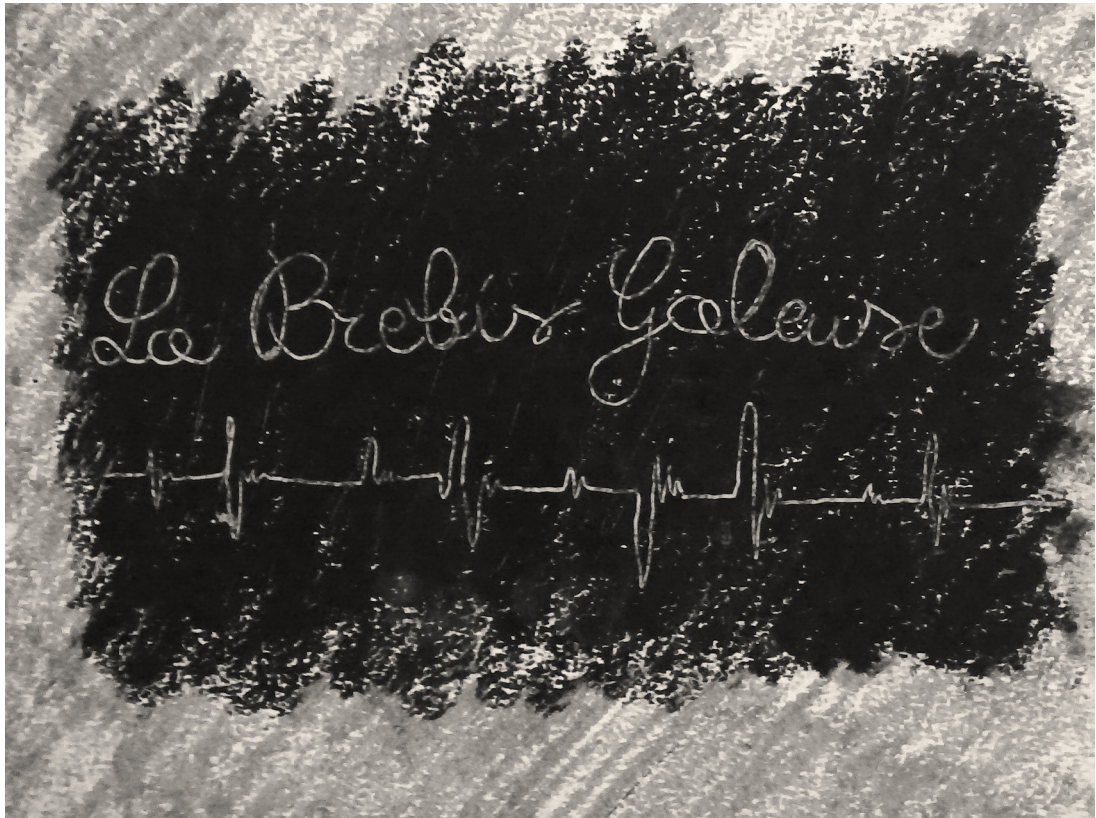 La Brebis Galeuse